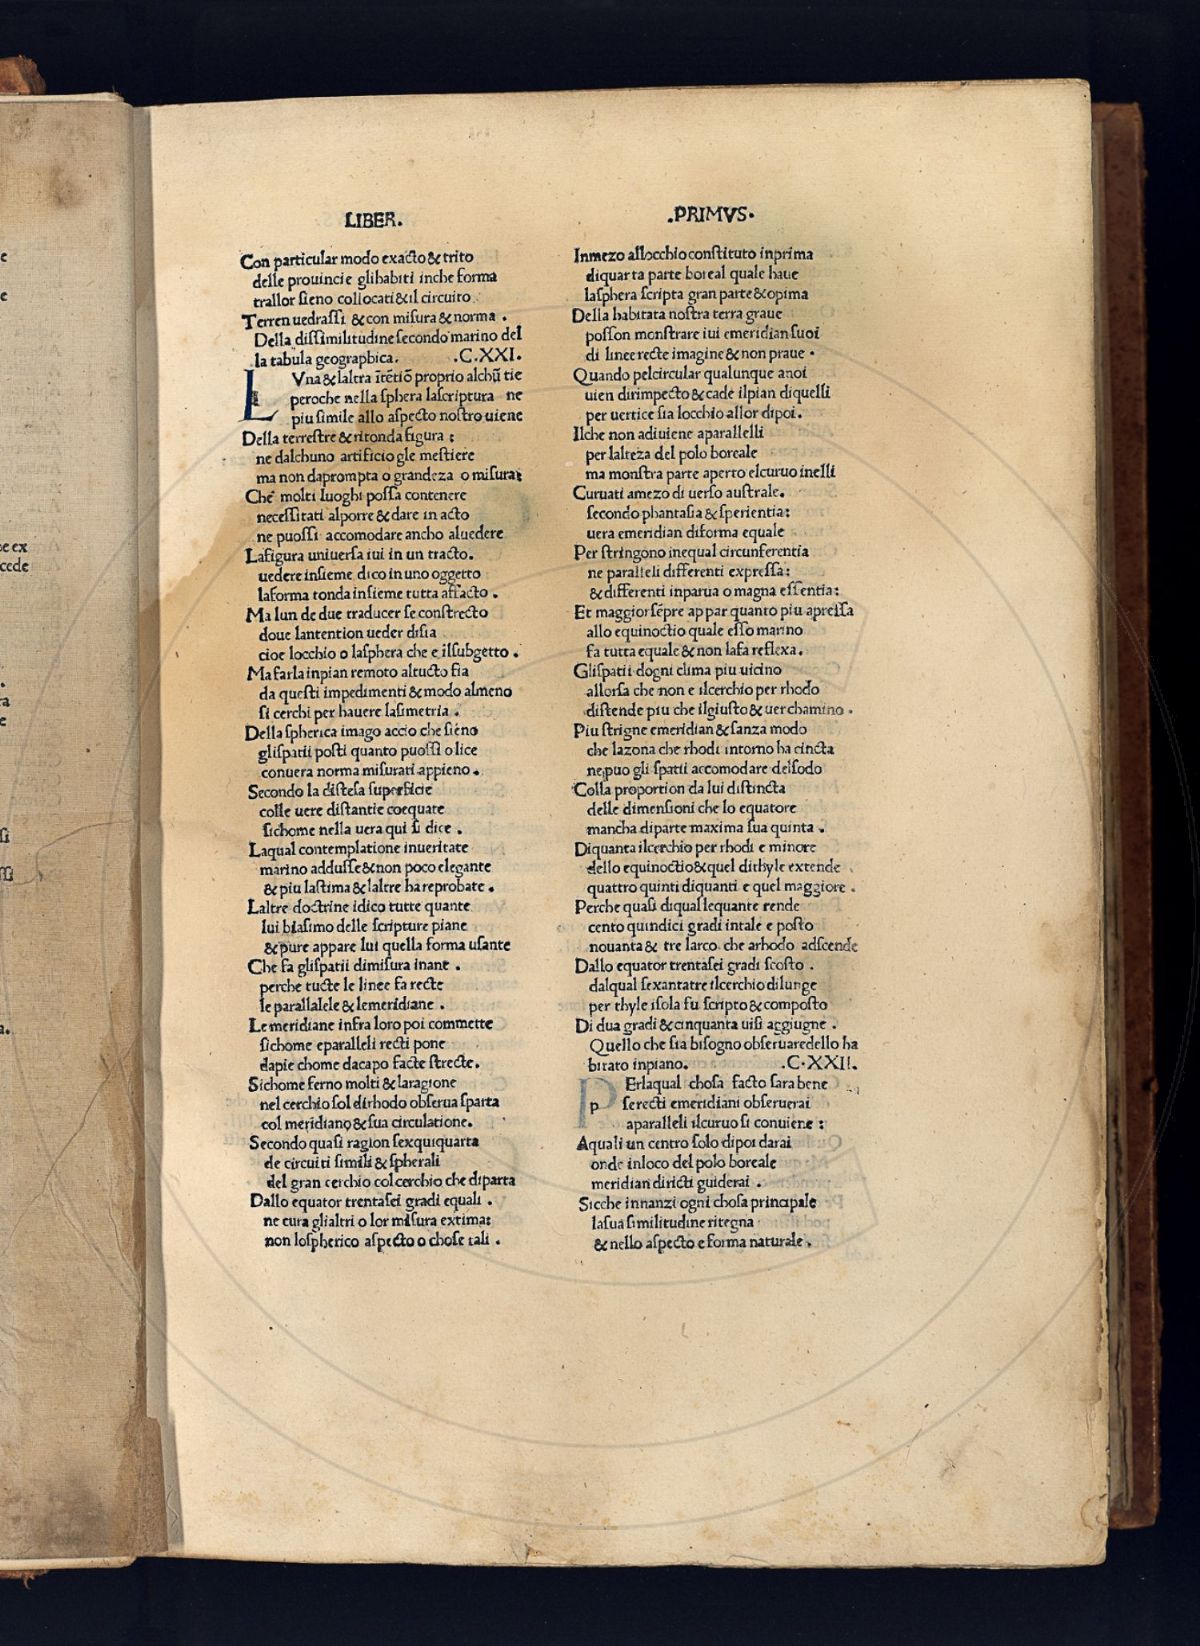 LIBER.
Con particular modo exacto & trito
delle prouincie glihabiti inche forma
trallor sieno collocati & il circuito
Terren uedrassi & con misura & norma .
Della dissimilitudine secondo marino del
la tabula geographica. .C.XXI.
L Vna & laltra ītētiō proprio alchū tie
peroche nella sphera lascriptura ne
piu simile allo aspecto nostro uiene
Della terrestre & ritonda figura :
ne dalchuno artificio gle mestiere
ma non daprompta o grandeza o misura:
Che molti luoghi possa contenere
necessitati alporre & dare in acto
ne puossi accomodare ancho aluedere
Lafigura uniuersa iui in un tracto.
uedere insieme dico in uno oggetto
laforma tonda insieme tutta affacto .
Ma lun de due traducer se constrecto
doue lantention ueder disia
cioe locchio o lasphera che e ilsubgetto .
Ma farla inpian remoto altucto fia
da questi impedimenti & modo almeno
si cerchi per hauere lasimetria .
Della spherica imago accio che sieno
glispatii posti quanto puossi o lice
con uera norma misurati appieno .
Secondo la distesa superficie
colle uere distantie coequate
sichome nella uera qui si dice .
Laqual contemplatione inueritate
marino addusse & non poco elegante
& piu lastima & laltre ha reprobate .
Laltre doctrine idico tutte quante
lui biasimo delle scripture piane
& pure appare lui quella forma usante
Che fa glispatii dimisura inane .
perche tucte le linee fa recte
le parallalele & lemeridiane .
Le meridiane infra loro poi commette
sichome eparalleli recti pone
dapie chome dacapo facte strecte.
Sichome ferno molti & laragione
nel cerchio sol dirhodo obserua sparta
col meridiano & sua circulatione.
Secondo quasi ragion sexquiquarta
de circuiti simili & spherali
del gran cerchio col cerchio che diparta
Dallo equator trentasei gradi equali .
ne cura glialtri o lor misura extima:
non lospherico aspecto o chose tali .
.PRIMVS.
Inmezo allocchio constituto inprima
diquarta parte boreal quale haue
lasphera scripta gran parte & opima
Della habitata nostra terra graue
posson monstrare iui emeridian suoi
di linee recte imagine & non praue .
Quando pelcircular qualunque anoi
uien dirimpecto & cade ilpian diquelli
per uertice sia locchio allor dipoi.
Ilche non adiuiene aparallelli
per lalteza del polo boreale
ma monstra parte aperto elcuruo inelli
Curuati amezo di uerso australe.
secondo phantasia & sperientia:
uera emeridian diforma equale
Per stringono inequal circunferentia
ne paralleli differenti expressa:
& differenti inparua o magna essentia:
Et maggior sēpre ap par quanto piu apressa
allo equinoctio quale esso marino
fa tutta equale & non lafa reflexa.
Glispatii dogni clima piu uicino
allorsa che non e ilcerchio per rhodo
distende piu che ilgiusto & uer chamino .
Piu strigne emeridian & sanza modo
che lazona che rhodi intorno ha cincta
ne puo gli spatii accomodare delsodo
Colla proportion da lui distincta
delle dimensioni che lo equatore
mancha diparte maxima sua quinta .
Diquanta ilcerchio per rhodi e minore
dello equinoctio & quel dithyle extende
quattro quinti diquanti e quel maggiore .
Perche quasi diqual lequante rende
cento quindici gradi intale e posto
nouanta & tre larco che arhodo adscende
Dallo equator trentasei gradi scosto .
dalqual sexantatre ilcerchio dilunge
per thyle isola fu scripto & composto
Di dua gradi & cinquanta uisi aggiugne .
Quello che sia bisogno obseruaredello ha
bitato inpiano. .C.XXII.
P p Erlaqual chosa facto sara bene
se recti emeridiani obseruerai
aparalleli ilcuruo si conuiene :
Aquali un centro solo dipoi darai
onde inloco del polo boreale
meridian diricti guiderai .
Sicche innanzi ogni chosa principale
lasua similitudine ritegna
& nello aspecto e forma naturale .
e
e
oe ex
cede
.
ra
e
si
a.